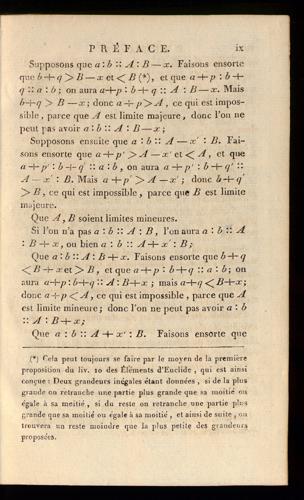 PRÉFACE. ix
Supposons que a : b :: A : B — x. Faisons ensorte
que b + q > B — x et < B (*), et que a + p : b +
q :: a : b ; on aura a + p : b + q :: A : B — x. Mais
b + q > B — x ; donc a + p > A, ce qui est impos-
sible, parce que A est limite majeure, donc l'on ne
peut pas avoir a : b :: A : B — x ;
Supposons ensuite que a : b :: A — x' : B. Fai-
sons ensorte que a + p' > A — x' et < A, et que
a + p' : b + q' :: a : b, on aura a + p' : b + q' ::
A — x' : B. Mais a + p' > A — x' ; donc b + q'
> B, ce qui est impossible, parce que B est limite
majeure.
Que A, B soient limites mineures.
Si l'on n'a pas a : b :: A : B, l'on aura a : b :: A
: B + x, ou bien a : b :: A + x' : B ;
Que a : b :: A : B + x. Faisons ensorte que b + q
< B + x et > B, et que a + p : b + q :: a : b ; on
aura a + p : b + q :: A : B + x ; mais b + q < B + x ;
donc a + p < A, ce qui est impossible, parce que A
est limite mineure ; donc l'on ne peut pas avoir a : b
:: A : B + x ;
Que a : b :: A + x' : B. Faisons ensorte que
(*) Cela peut toujours se faire par le moyen de la première
proposition du liv. 10 des Éléments d'Euclide, qui est ainsi
conçue : Deux grandeurs inégales étant données, si de la plus
grande on retranche une partie plus grande que sa moitié ou
égale à sa moitié, si du reste on retranche une partie plus
grande que sa moitié ou égale à sa moitié, et ainsi de suite, on
trouvera un reste moindre que la plus petite des grandeurs
proposées.